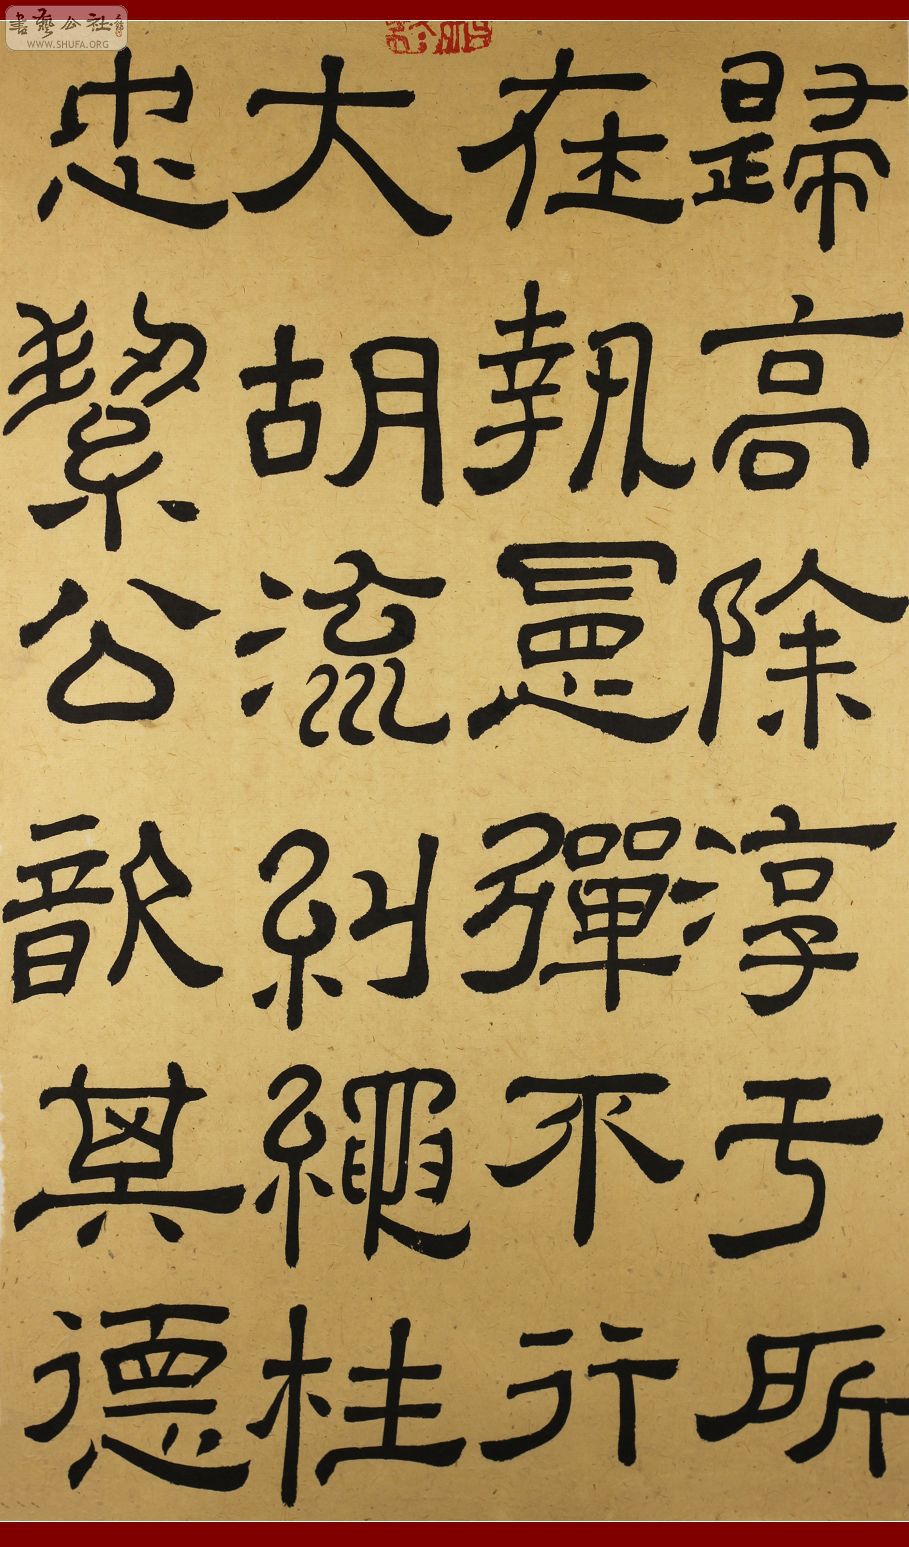 書藝公社
WWW.SHUFA.ORG
歸高除淳于所
在執憲彈不行
大胡流糾繩枉
忠絜公歆其德